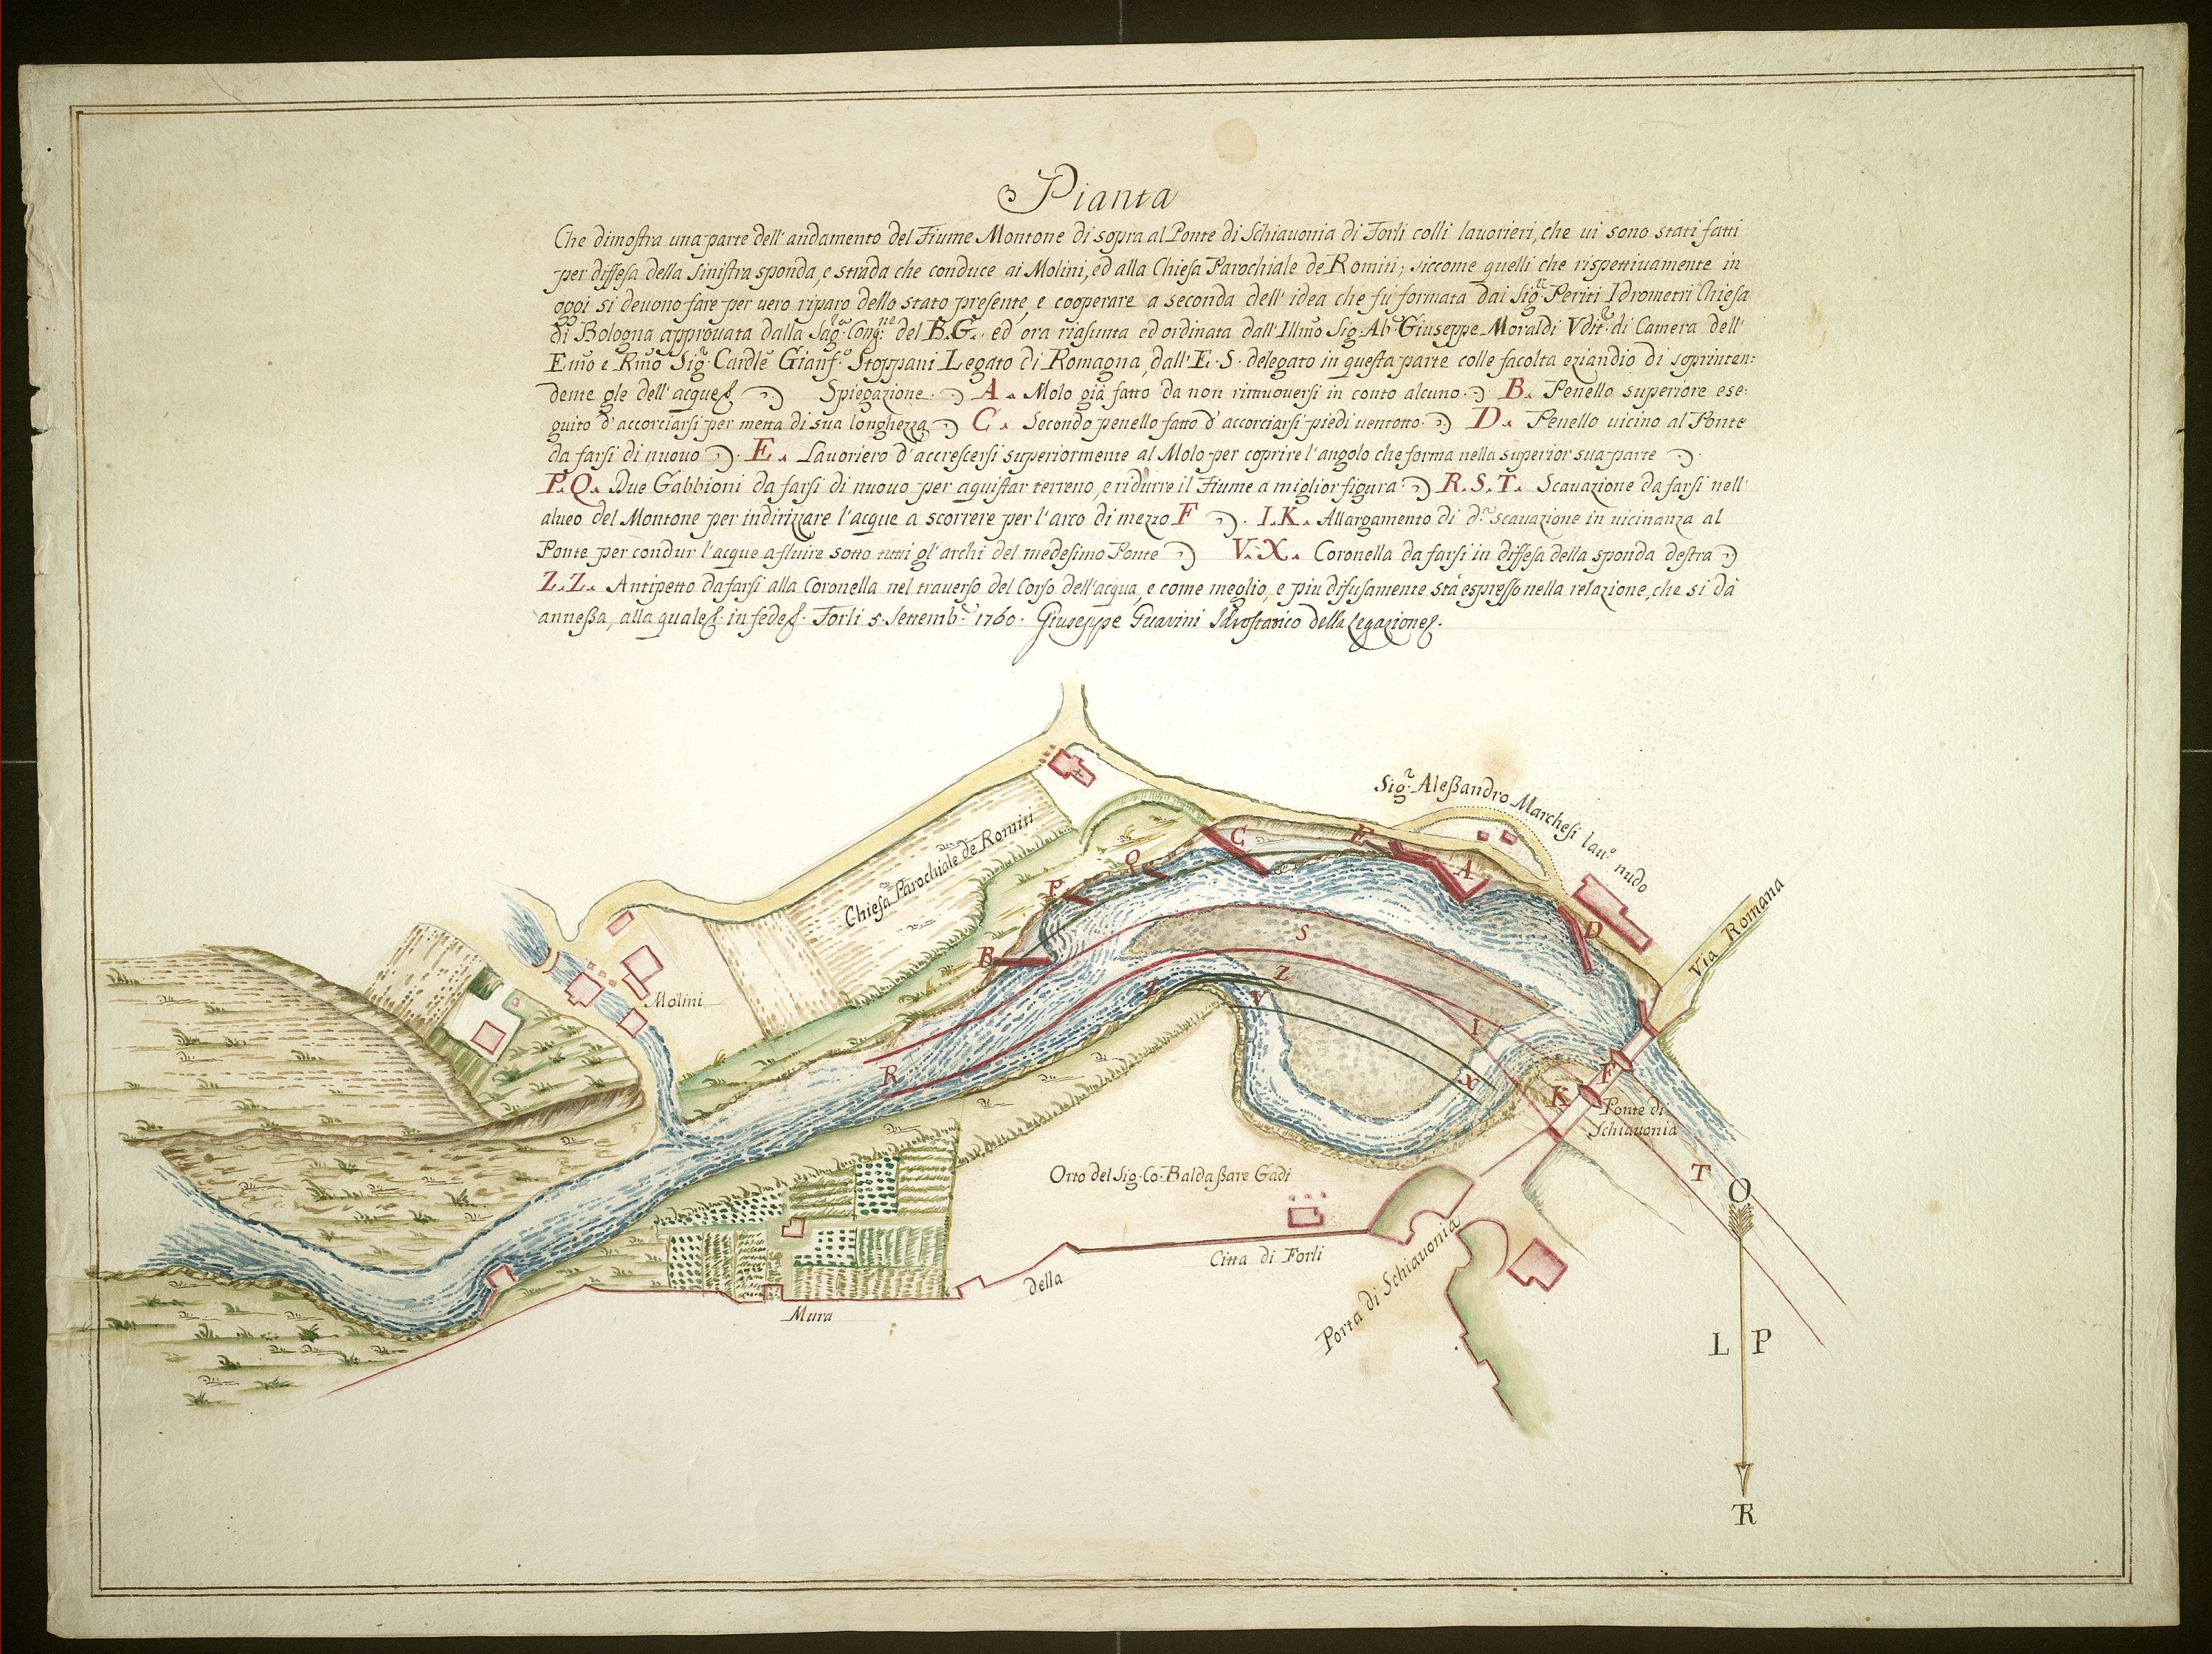 Pianta
Che dimostra una parte dell'andamento del Fiume Montone di sopra al Ponte di Schiavonia di Forlì colli lavorieri, che vi sono stati fatti
per diffesa della sinistra sponda, e strada che conduce ai Molini, ed alla Chiesa Parochiale de Romiti; siccome quelli che rispettivamente in
oggi si devono fare per vero riparo dello stato presente, e cooperare a seconda dell'idea che fù formata dai Sig.ri Periti Idrometri Chiesa
di Bologna approvata dalla Sag.a Cong.ne del B.G. ed ora riasunta ed ordinata dall'Illmo Sig. Ab. Giuseppe Moraldi Vdit.r di Camera dell'
Emo e Rmo Sig.r Cardle Gianf.o Stoppani Legato di Romagna, dall'E.S. delegato in questa parte colle facolta eziandio di soprinten:
dente gle dell'acque Spiegazione. A. Molo già fatto da non rimuoversi in conto alcuno. B. Penello superiore ese:
guito d'accorciarsi per metta di sua longhezza C. Secondo penello fatto d'accorciarsi piedi ventotto. D. Penello vicino al Ponte
da farsi di nuovo. E. Lavoriero d'accrescersi superiormente al Molo per coprire l'angolo che forma nella superior sua parte.
P.Q. Due Gabbioni da farsi di nuovo per aquistar terreno, e ridurre il Fiume a miglior figura. R.S.T. Scavazione da farsi nell'
alveo del Montone per indirizzare l'acque a scorrere per l'arco di mezzo F. I.K. Allargamento di d.a scavazione in vicinanza al
Ponte per condur l'acque a fluire sotto tutti gl'archi del medesimo Ponte V.X. Coronella da farsi in diffesa della sponda destra
Z.Z. Antipetto da farsi alla Coronella nel traverso del Corso dell'acqua, e come meglio, e piu difusamente stà espresso nella relazione, che si dà
annessa, alla quale in fede. Forlì 5 Settemb.e 1760. Giuseppe Guarini Idrostatico della Legazione.
Sig.r Alessandro Marchesi lau.o nudo
Chiesa Parochiale de Romiti
C
E
A
Q
P
D
Via Romana
B
S
Z
Z
V
Molini
I
R
X
F
K
Ponte di
Schiavonia
T
Orto del Sig. Co. Baldassare Gadi
O
Porta di Schiavonia
Mura
della
Citta di Forlì
L P
TR